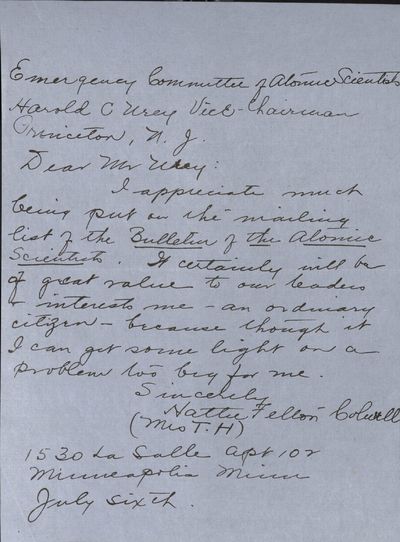 Emergency Committee of Atomic Scientists
Harold C Urey Vice-Chairman
Princeton, N. J.
Dear Mr Urey:
I appreciate much
being put on the mailing
list of the Bulletin of the Atomic
Scientists. It certainly will be
of great value to our leaders
- interests me - an ordinary
citizen - because though it
I can get some light on a
problem too big for me.
Sincerely
Hattie Felton Colwell
(Mrs T. H)
1530 La Salle apt 102
Minneapolis Minn
July sixth.